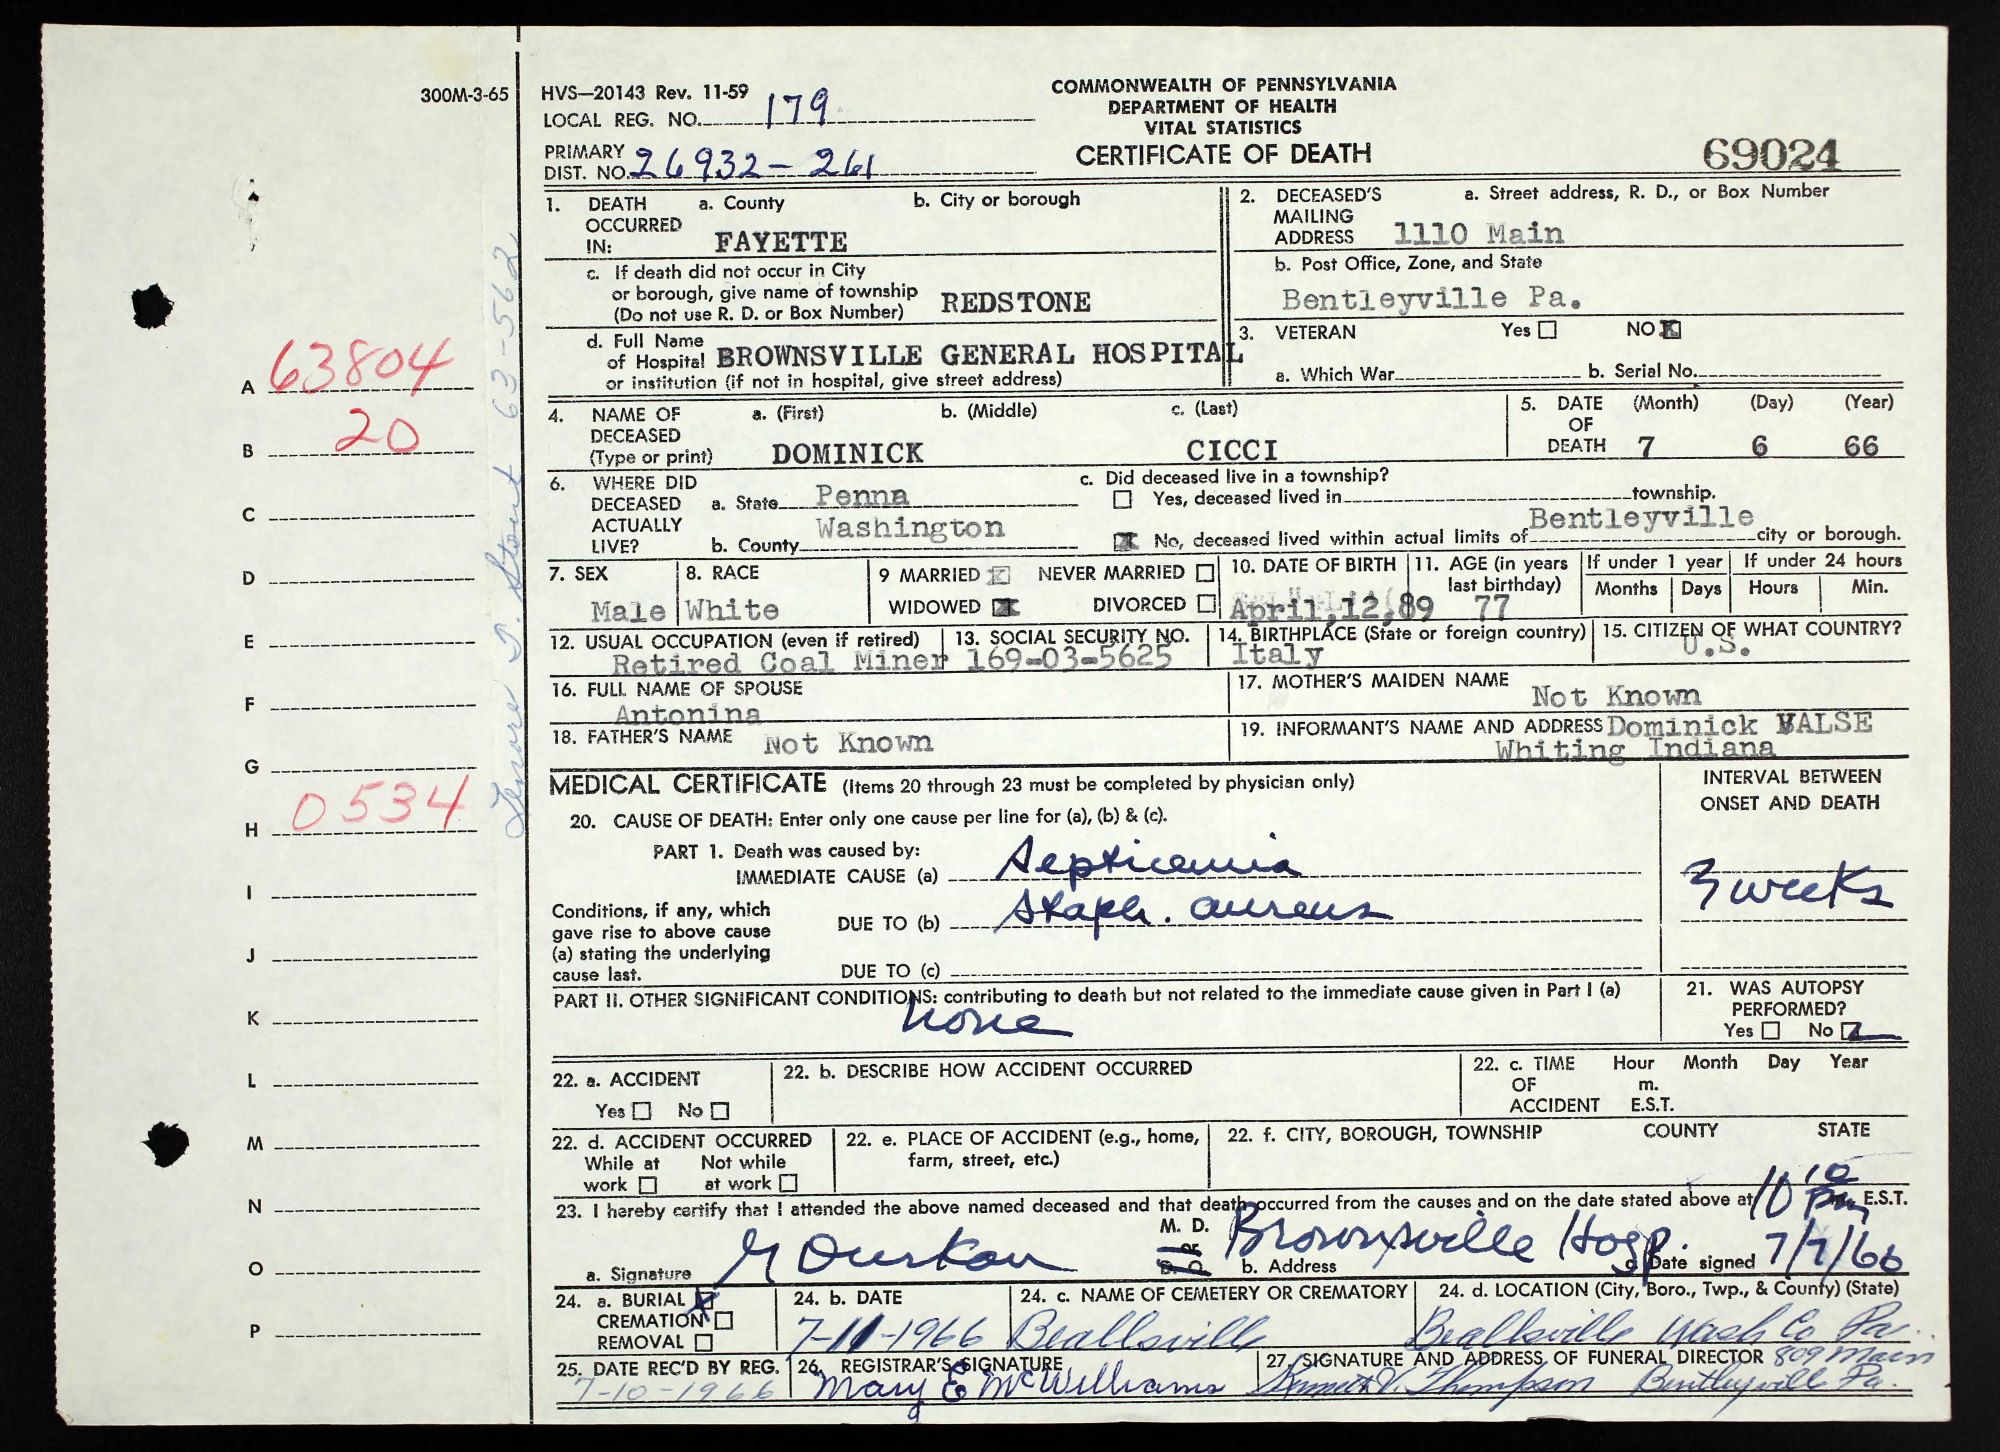 300M-3-65
HVS—20143 Rev. 11-59
LOCAL REG. NO. 179
PRIMARY
DIST. NO. 26932-261
COMMONWEALTH OF PENNSYLVANIA
DEPARTMENT OF HEALTH
VITAL STATISTICS
CERTIFICATE OF DEATH
69024
1. DEATH OCCURRED IN:
a. County
FAYETTE
b. City or borough
c. If death did not occur in City
or borough, give name of township
(Do not use R. D. or Box Number)
REDSTONE
d. Full Name
of Hospital BROWNSVILLE GENERAL HOSPITAL
or institution (if not in hospital, give street address)
2. DECEASED'S MAILING ADDRESS
a. Street address, R. D., or Box Number
1110 Main
b. Post Office, Zone, and State
Bentleyville Pa.
3. VETERAN Yes NO X
a. Which War b. Serial No.
4. NAME OF DECEASED (Type or print)
a. (First) b. (Middle) c. (Last)
DOMINICK CICCI
5. DATE OF DEATH (Month) (Day) (Year)
7 6 66
6. WHERE DID DECEASED ACTUALLY LIVE?
a. State Penna
b. County Washington
c. Did deceased live in a township?
Yes, deceased lived in township.
No, deceased lived within actual limits of Bentleyville city or borough.
7. SEX
Male
8. RACE
White
9 MARRIED NEVER MARRIED
WIDOWED DIVORCED
10. DATE OF BIRTH
April,12,89
11. AGE (in years last birthday)
77
If under 1 year
Months Days
If under 24 hours
Hours Min.
12. USUAL OCCUPATION (even if retired)
Retired Coal Miner
13. SOCIAL SECURITY NO.
169-03-5625
14. BIRTHPLACE (State or foreign country)
Italy
15. CITIZEN OF WHAT COUNTRY?
U.S.
16. FULL NAME OF SPOUSE
Antonina
17. MOTHER'S MAIDEN NAME Not Known
18. FATHER'S NAME Not Known
19. INFORMANT'S NAME AND ADDRESS Dominick VALSE
Whiting Indiana
MEDICAL CERTIFICATE (Items 20 through 23 must be completed by physician only)
INTERVAL BETWEEN
ONSET AND DEATH
20. CAUSE OF DEATH: Enter only one cause per line for (a), (b) & (c).
PART 1. Death was caused by:
IMMEDIATE CAUSE (a) Septicemia
3 weeks
Conditions, if any, which
gave rise to above cause
(a) stating the underlying
cause last.
DUE TO (b) Staph. aureus
DUE TO (c)
PART II. OTHER SIGNIFICANT CONDITIONS: contributing to death but not related to the immediate cause given in Part I (a)
none
21. WAS AUTOPSY PERFORMED?
Yes No
22. a. ACCIDENT
Yes No
22. b. DESCRIBE HOW ACCIDENT OCCURRED
22. c. TIME OF ACCIDENT Hour Month Day Year
m.
E.S.T.
22. d. ACCIDENT OCCURRED
While at work Not while at work
22. e. PLACE OF ACCIDENT (e.g., home, farm, street, etc.)
22. f. CITY, BOROUGH, TOWNSHIP COUNTY STATE
23. I hereby certify that I attended the above named deceased and that death occurred from the causes and on the date stated above at 10 10 pm E.S.T.
a. Signature
M. D. or D. O.
b. Address Brownsville Hosp.
c. Date signed 7/7/66
24. a. BURIAL X
CREMATION
REMOVAL
24. b. DATE
7-11-1966
24. c. NAME OF CEMETERY OR CREMATORY
Beallsville
24. d. LOCATION (City, Boro., Twp., & County) (State)
Beallsville Wash Co Pa.
25. DATE REC'D BY REG.
7-10-1966
26. REGISTRAR'S SIGNATURE
Mary E McWilliams
27. SIGNATURE AND ADDRESS OF FUNERAL DIRECTOR 809 Main
Kenneth V. Thompson Bentleyville Pa.
A 63804
B 20
C
D
E
F
G
H 0534
I
J
K
L
M
N
O
P
63-562